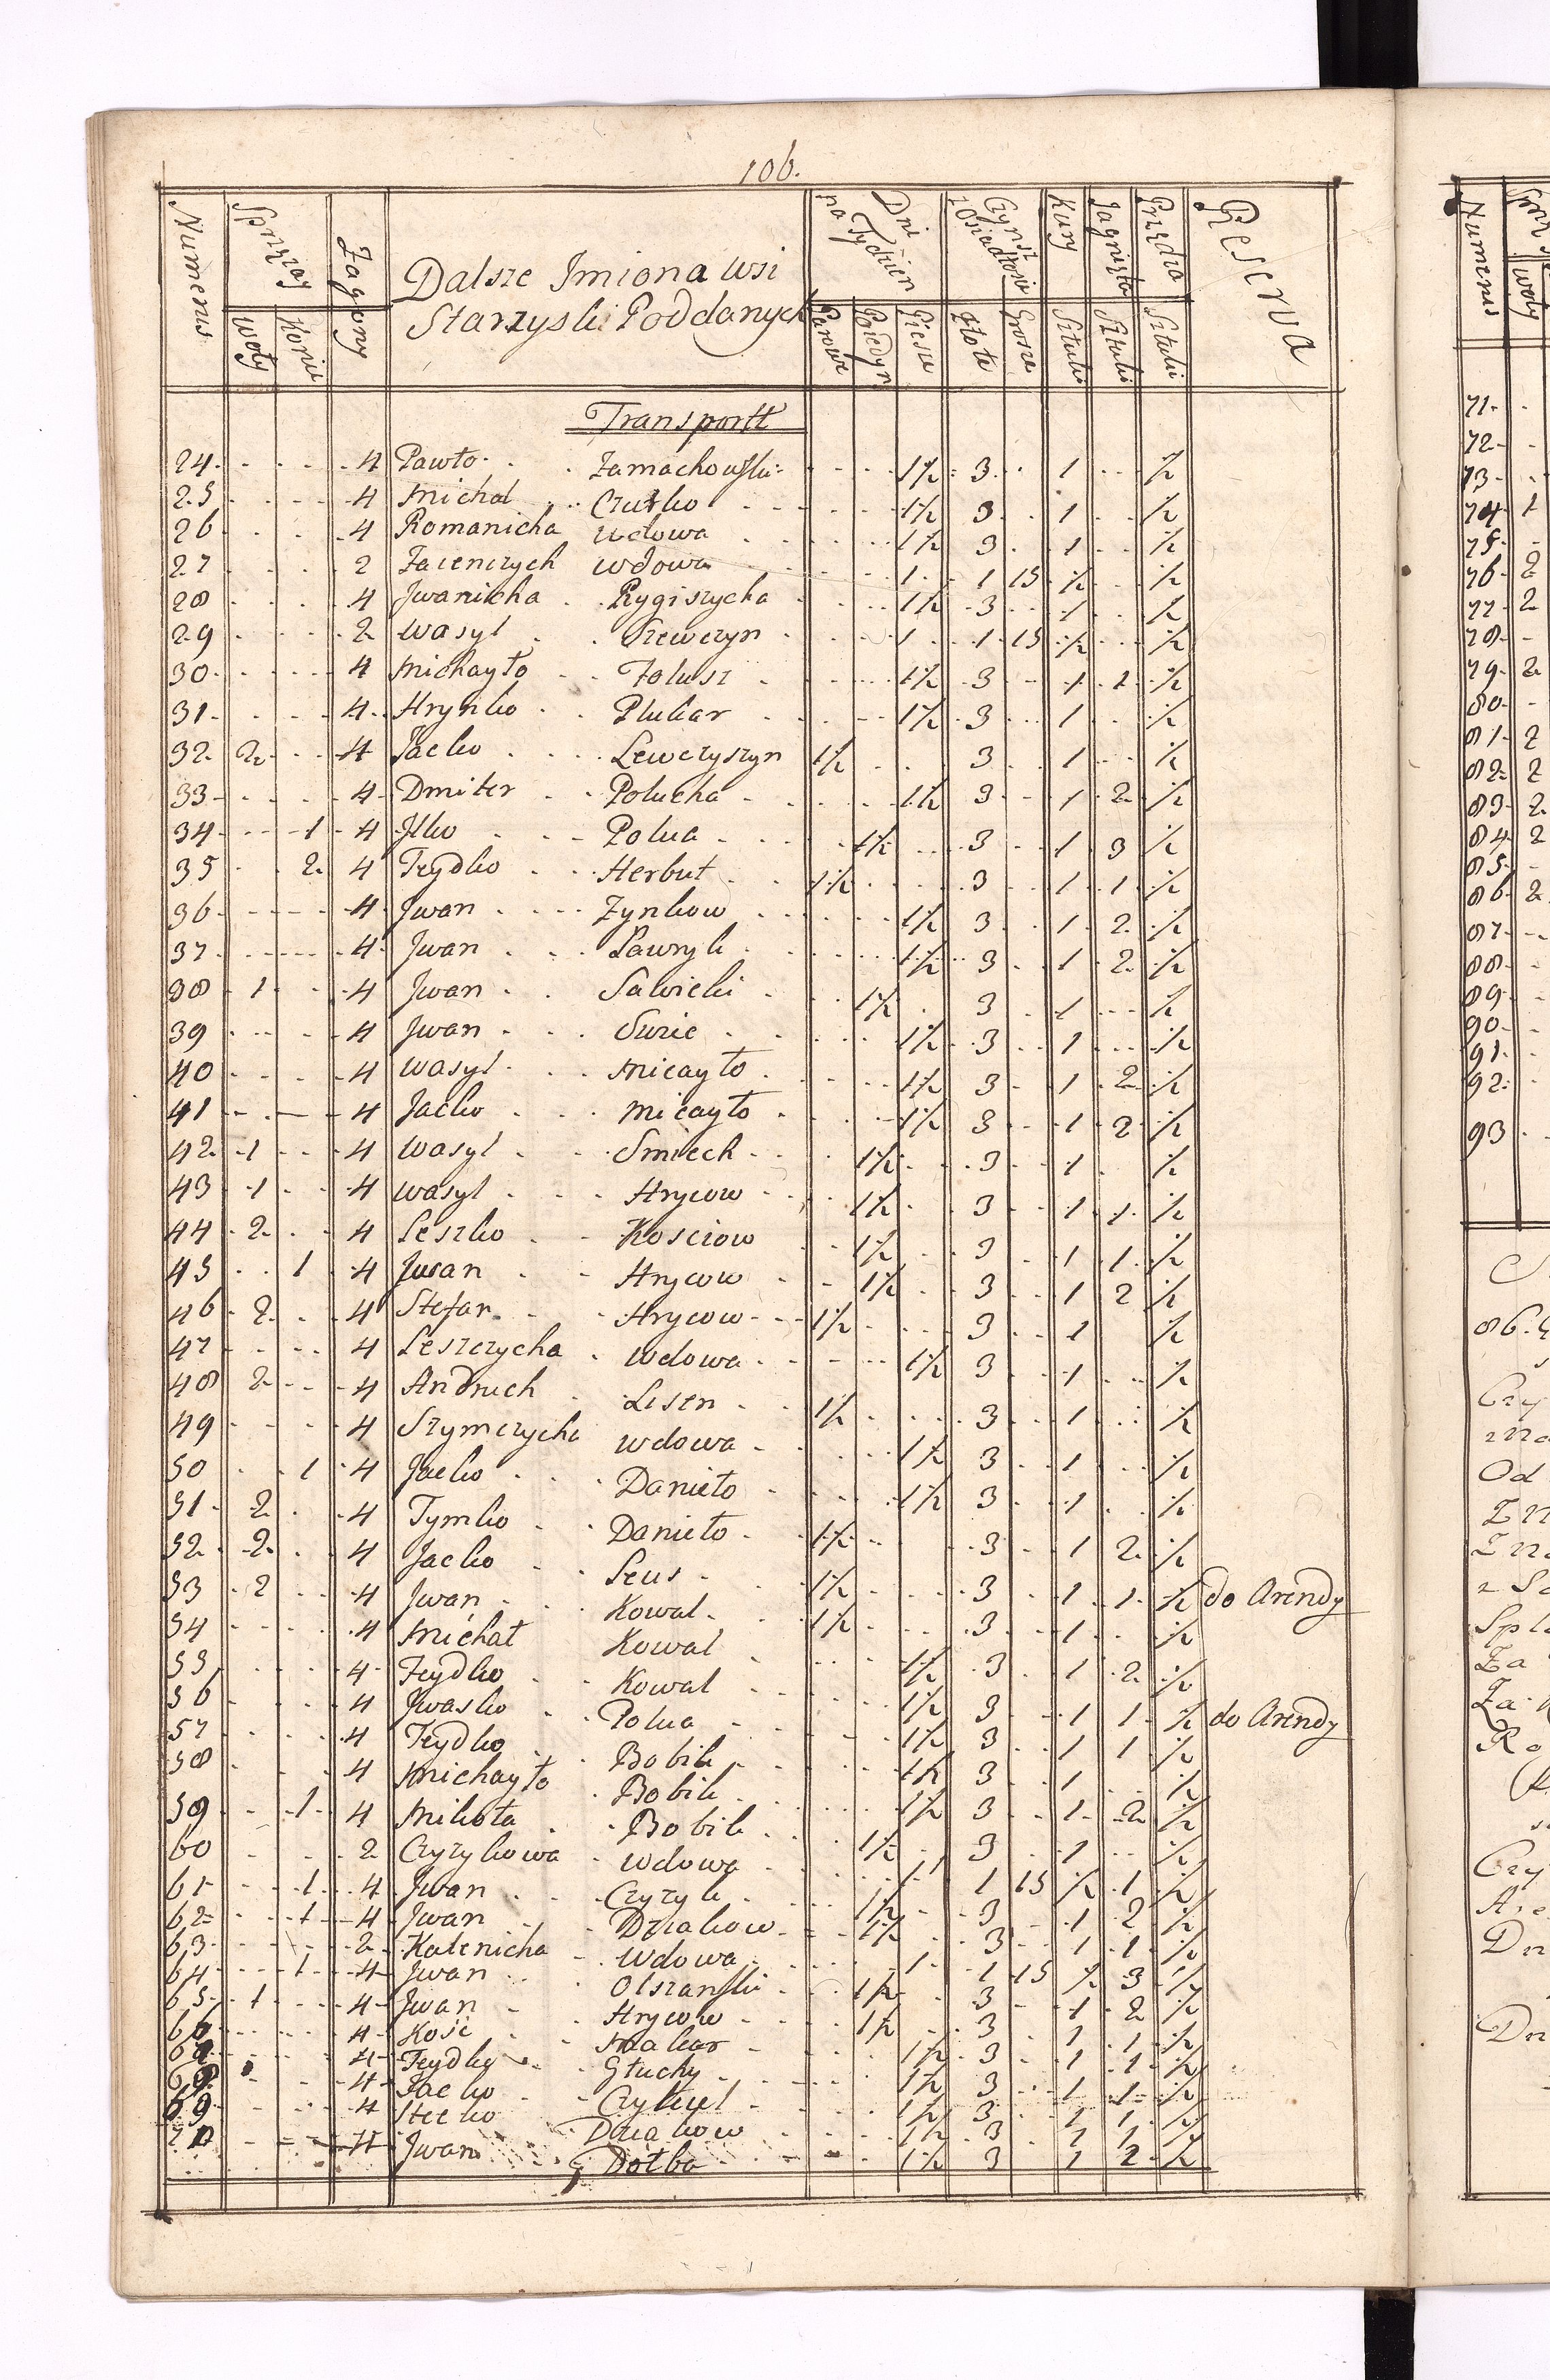 106.
Numerus Sprzęzay Zagony Dalsze Imiona Wsi Dni na Tydzien Czynsz z Osiadłosci Kury Jagnięta Przędza Reserva
Woły Konie Starzyski Poddanych Parowe Poiedyn Piesze Złote Grosze Sztuki Sztuki Sztuki
Transportt
24 4 Pawło Zamachowski 1½ 3 1 ½
25 4 Michał 1½ 3 1 ½
26 4 Romanicha wdowa 1½ 3 1 ½
27 2 wdowa 1 1 15 ½ ½
28 4 Iwanicha Rygiszycha 1½ 3 1 ½
29 2 Wasyl Szewczyn 1 1 15 ½ ½
30 4 Michayło 1½ 3 1 1 ½
31 4 Hrynko Plukar 1½ 3 1 ½
32 2 4 Jacko Lewczyszyn 1½ 3 1 ½
33 4 Dmiter Polucha 1½ 3 1 2 ½
34 1 4 Ilko Polua 1½ 3 1 3 ½
35 2 4 Feydko Herbut 1½ 3 1 1 ½
36 4 Iwan Zynkow 1½ 3 1 2 ½
37 4 Iwan Ławryk 1½ 3 1 2 ½
38 1 4 Iwan Sawicki 1½ 3 1 ½
39 4 Iwan 1½ 3 1 ½
40 4 Wasyl Micayło 1½ 3 1 2 ½
41 4 Jacko Micayło 1½ 3 1 2 ½
42 1 4 Wasyl Smiech 1½ 3 1 ½
43 1 4 Wasyl Hrycow 1½ 3 1 1 ½
44 2 4 Leszko Kosciow 1½ 3 1 1 ½
45 1 4 Iwan Hrycow 1½ 3 1 2 ½
46 2 4 Stefan Hrycow 1½ 3 1 ½
47 4 Leszczycha Wdowa 1½ 3 1 ½
48 2 4 Andruch Lisen 1½ 3 1 ½
49 4 Szymczycha wdowa 1½ 3 1 ½
50 1 4 Jacko Daniło 1½ 3 1 ½
51 2 4 Tymko Daniło 1½ 3 1 2 ½
52 2 4 Jacko Leus 1½ 3 1 1 ½ do Arendy
53 2 4 Iwan Kowal 1½ 3 1 ½
54 4 Michał Kowal 1½ 3 1 2 ½
55 4 Feydko Kowal 1½ 3 1 1 ½ do Arendy
56 4 Iwasko Polua 1½ 3 1 1 ½
57 4 Feydko Bobik 1½ 3 1 ½
58 4 Michayło Bobik 1½ 3 1 2 ½
59 1 4 Mikoła Bobik 1½ 3 1 ½
60 2 Czyzykowa wdowa 1 1 15 ½ 1 ½
61 1 4 Iwan Czyzyk 1½ 3 1 2 ½
62 1 4 Iwan Dziakow 1½ 3 1 1 ½
63 2 Kalenicha Wdowa 1 1 15 ½ 3 ½
64 1 4 Iwan Olszanski 1½ 3 1 2 ½
65 1 4 Iwan Hrycow 1½ 3 1 1 ½
66 4 Kość Makar 1½ 3 1 1 ½
67 4 Feydko Głuchy 1½ 3 1 1 ½
68 4 Jacko 1½ 3 1 1 ½
69 4 Stecko Dziakow 1½ 3 1 1 ½
70 4 Iwan Dołba 1½ 3 1 2 ½
Numerus
Woły
71
72
73
74 1
75
76 2
77 2
78
79 2
80
81 2
82 2
83 2
84 2
85
86 2
87
88
89
90
91
92
93
Od
Za